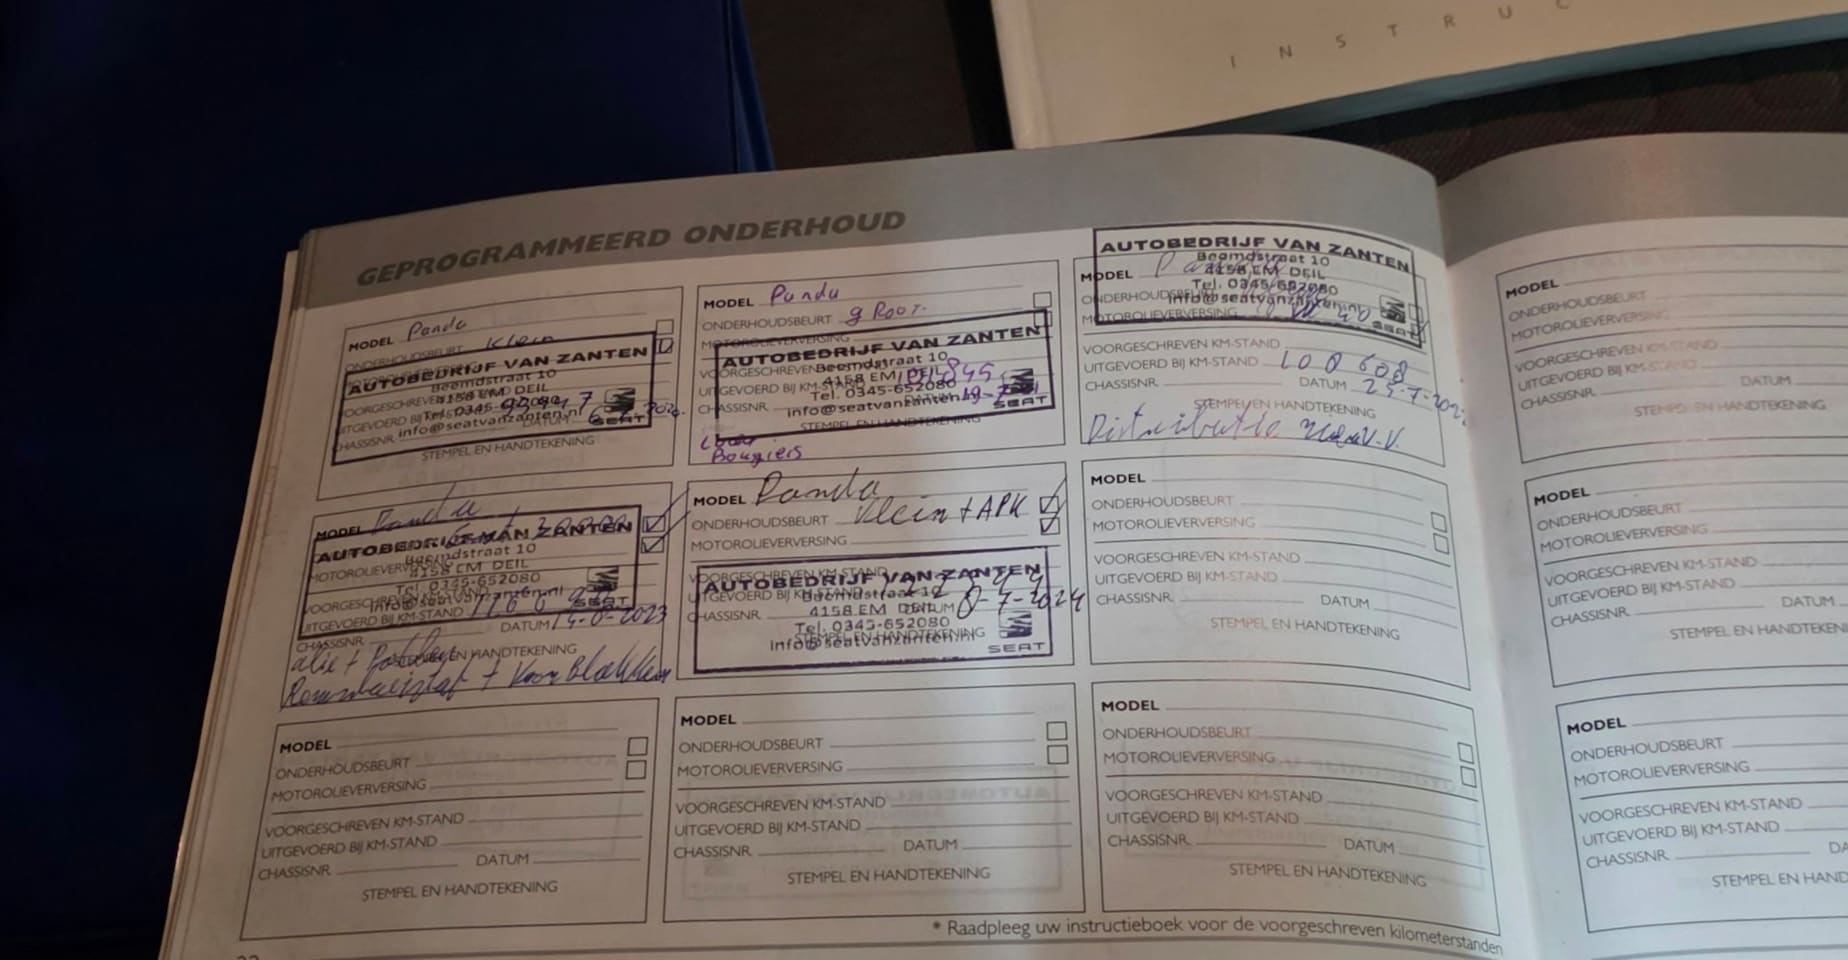 I N S T R U C
GEPROGRAMMEERD ONDERHOUD
MODEL Panda
ONDERHOUDSBEURT Klein
AUTOBEDRIJF VAN ZANTEN
Beemdstraat 10
4158 EM DEIL
Tel. 0345-652080
info@seatvanzanten.nl
SEAT
VOORGESCHREVEN
UITGEVOERD BIJ KM-STAND
CHASSISNR.
DATUM
STEMPEL EN HANDTEKENING
MODEL Panda
ONDERHOUDSBEURT gRoot.
MOTOROLIEVERVERSING
AUTOBEDRIJF VAN ZANTEN
Beemdstraat 10
4158 EM DEIL
Tel. 0345-652080
info@seatvanzanten.nl
SEAT
VOORGESCHREVEN
UITGEVOERD BIJ KM-STAND
CHASSISNR.
STEMPEL EN HANDTEKENING
Bougiers
AUTOBEDRIJF VAN ZANTEN
Beemdstraat 10
4158 EM DEIL
Tel. 0345-652080
info@seatvanzanten.nl
SEAT
MODEL Panda
ONDERHOUDSBEURT
MOTOROLIEVERVERSING
VOORGESCHREVEN KM-STAND
UITGEVOERD BIJ KM-STAND 100608
CHASSISNR. DATUM
STEMPEL EN HANDTEKENING
Distributie
MODEL Panda
AUTOBEDRIJF VAN ZANTEN
Beemdstraat 10
4158 EM DEIL
Tel. 0345-652080
info@seatvanzanten.nl
SEAT
MOTOROLIEVERVERSING
VOORGESCHREVEN
UITGEVOERD BIJ KM-STAND
CHASSISNR. DATUM
STEMPEL EN HANDTEKENING
MODEL Panda
ONDERHOUDSBEURT Klein + APK
MOTOROLIEVERVERSING
VOORGESCHREVEN KM-STAND
AUTOBEDRIJF VAN ZANTEN
UITGEVOERD BIJ KM-STAND
Beemdstraat 10
CHASSISNR. DATUM 8-7-2024
4158 EM DEIL
Tel. 0345-652080
STEMPEL EN HANDTEKENING
info@seatvanzanten.nl
SEAT
MODEL
ONDERHOUDSBEURT
MOTOROLIEVERVERSING
VOORGESCHREVEN KM-STAND
UITGEVOERD BIJ KM-STAND
CHASSISNR. DATUM
STEMPEL EN HANDTEKENING
MODEL
ONDERHOUDSBEURT
MOTOROLIEVERVERSING
VOORGESCHREVEN KM-STAND
UITGEVOERD BIJ KM-STAND
CHASSISNR. DATUM
STEMPEL EN HANDTEKENING
MODEL
ONDERHOUDSBEURT
MOTOROLIEVERVERSING
VOORGESCHREVEN KM-STAND
UITGEVOERD BIJ KM-STAND
CHASSISNR. DATUM
STEMPEL EN HANDTEKENING
MODEL
ONDERHOUDSBEURT
MOTOROLIEVERVERSING
VOORGESCHREVEN KM-STAND
UITGEVOERD BIJ KM-STAND
CHASSISNR. DATUM
STEMPEL EN HANDTEKENING
* Raadpleeg uw instructieboek voor de voorgeschreven kilometerstanden
MODEL
ONDERHOUDSBEURT
MOTOROLIEVERVERSING
VOORGESCHREVEN KM-STAND
UITGEVOERD BIJ KM-STAND
CHASSISNR. DATUM
STEMPEL EN HANDTEKENING
MODEL
ONDERHOUDSBEURT
MOTOROLIEVERVERSING
VOORGESCHREVEN KM-STAND
UITGEVOERD BIJ KM-STAND
CHASSISNR. DATUM
STEMPEL EN HANDTEKENIN
MODEL
ONDERHOUDSBEURT
MOTOROLIEVERVERSING
VOORGESCHREVEN KM-STAND
UITGEVOERD BIJ KM-STAND
CHASSISNR. DA
STEMPEL EN HAND